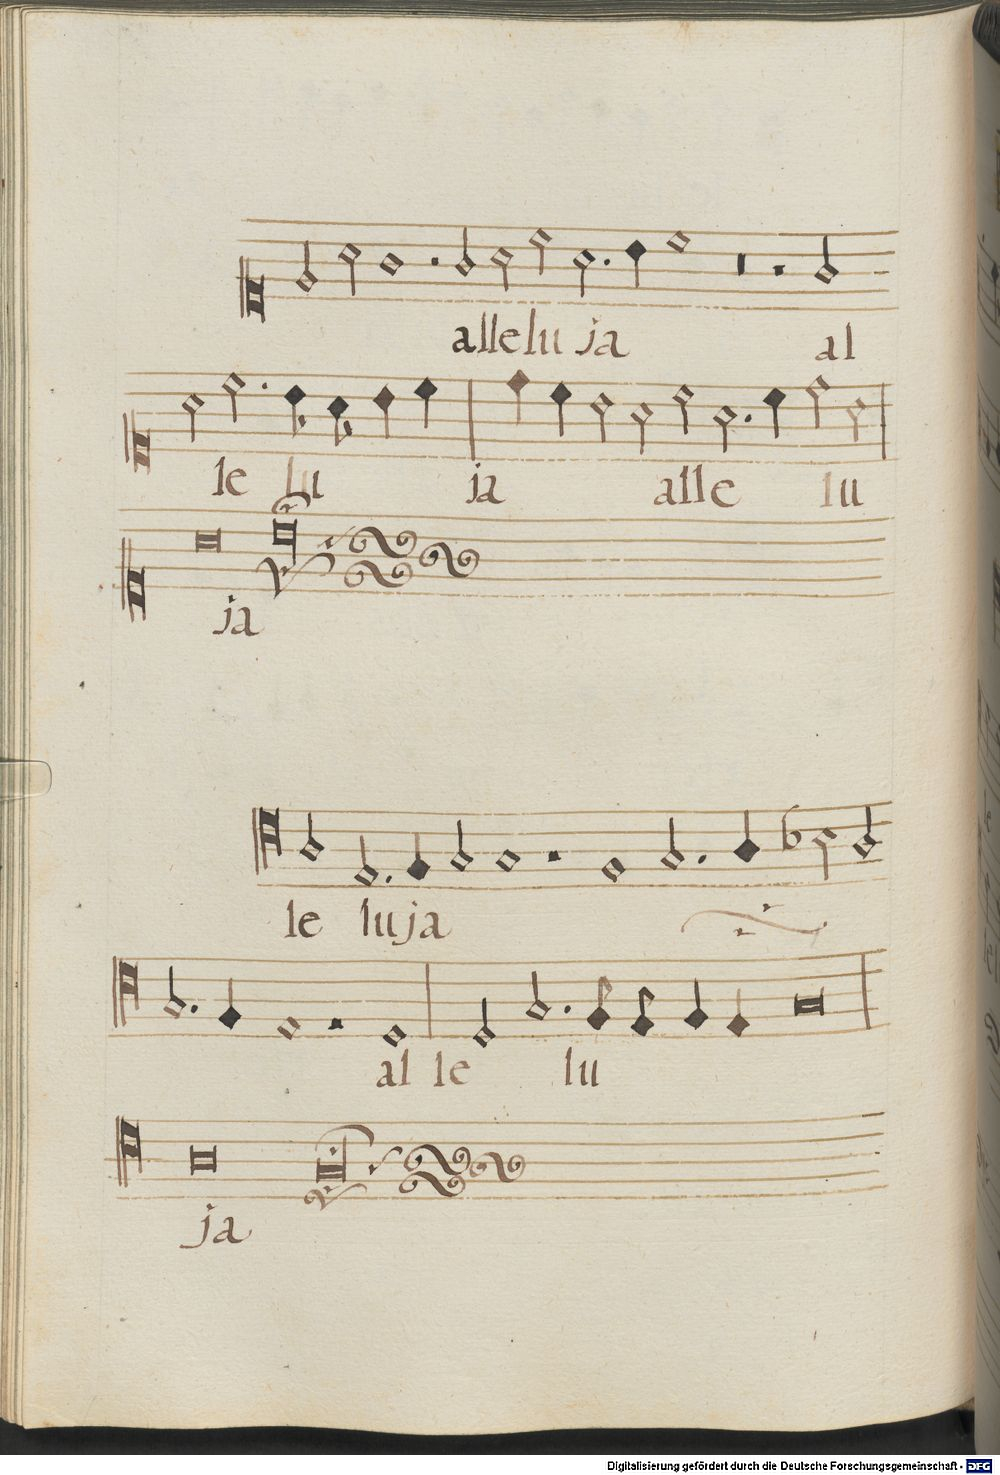 alleluja al
le lu ja alle lu
ja
le luja
al le lu
ja
Digitalisierung gefördert durch die Deutsche Forschungsgemeinschaft - DFG